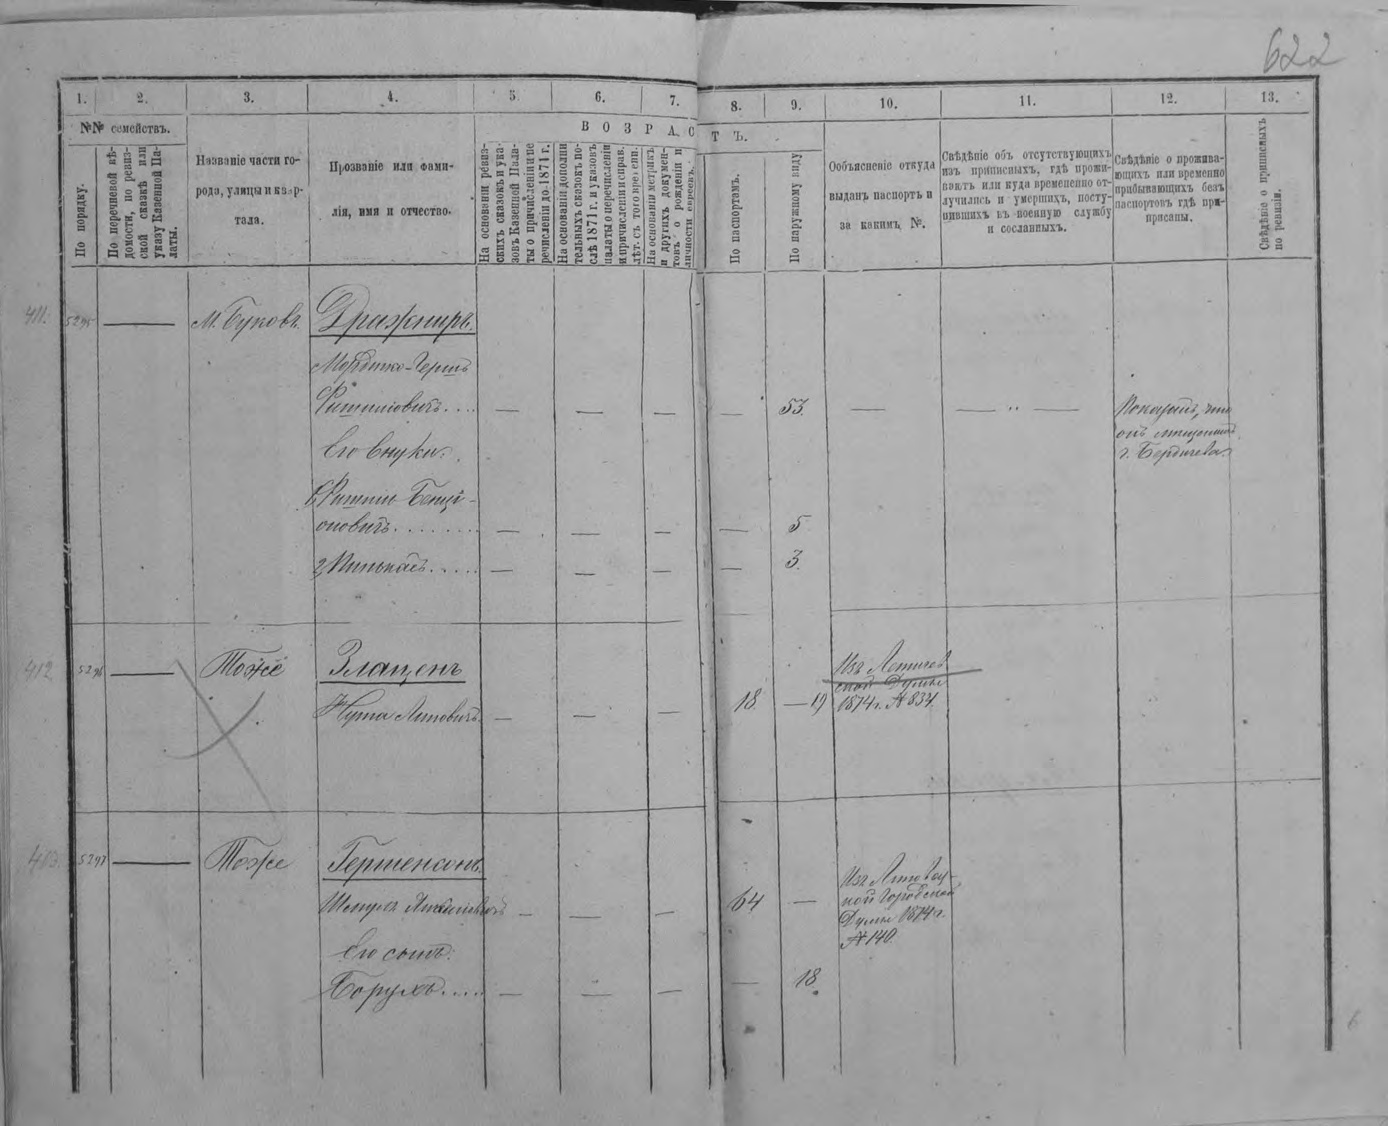 622
1. 2. 3. 4. 5. 6. 7. 8. 9. 10. 11. 12. 13.
№№ семействъ.
В О З Р А С Т Ъ.
По порядку.
По перечневой вѣ-
домости, по ревиз-
ской сказкѣ или
указу Казенной Па-
латы.
Названіе части го-
рода, улицы и квар-
тала.
Прозваніе или фами-
лія, имя и отчество.
На основаніи ревиз-
скихъ сказокъ и ука-
зовъ Казенной Пала-
ты о причисленіи и пе-
речисленіи до 1871 г.
На основаніи дополни-
тельныхъ сказокъ по-
слѣ 1871 г. и указовъ
палаты о перечисленіи
и причисленіи и справ.
лѣт. съ того времени.
На основаніи метрикъ
и другихъ докумен-
товъ о рожденіи и
личности евреевъ.
По паспортамъ.
По наружному виду
Объясненіе откуда
выданъ паспортъ и
за какимъ №.
Свѣдѣніе объ отсутствующихъ
изъ приписныхъ, гдѣ прожи-
ваютъ или куда временно от-
лучились и умершихъ, посту-
пившихъ въ военную службу
и сосланныхъ.
Свѣдѣніе о прожива-
ющихъ или временно
прибывающихъ безъ
паспортовъ гдѣ при-
писаны.
Свѣдѣніе о приписныхъ
по ревизіи.
411. 5295 — М. Буковъ Дрижниръ
Мордко-Герш
— — — — 53. — — " —
Показалъ, что
онъ мѣщанинъ
г. Бердичева
Его внуки:
оновичъ — — — — 5
2, Пинькасъ — — — — 3.
412 5296 — Тоже Злацень
Нута — — — 18. — 19
Изъ
Думы
1874 г. № 834.
413 5297 — Тоже Гершензонъ
— — — 64 —
Изъ
ной Городской
Думы 1874 г.
№ 140.
Его сынъ:
Борухъ — — — — 18.
6